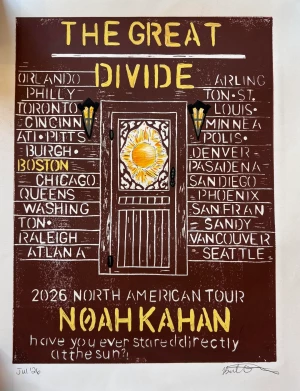 THE GREAT
DIVIDE
ORLANDO
PHILLY
TORONTO
CINCINN
ATI • PITTS
BURGH •
BOSTON
CHICAGO
QUEENS
WASHING
TON •
RALEIGH
ATLANA
ARLING
TON • ST.
LOUIS •
MINNEA
POLIS •
DENVER •
PASADENA
SAN DIEGO
PHOENIX
SAN FRAN
SANDY
VANCOUVER
SEATTLE
2026 NORTH AMERICAN TOUR
NOAH KAHAN
have you ever stared directly
at the sun?!
Jul '26